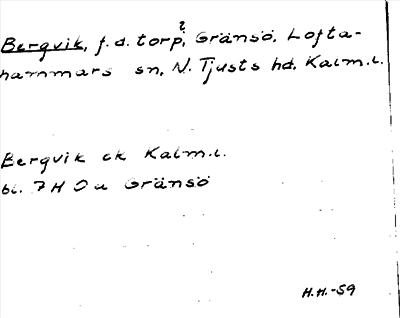 Bergvik, f.d. torp?, Gränsö, Lofta-
hammars sn, N. Tjusts hd, Kalm.l.
Bergvik ek Kalm.l.
bl. 7 H O u Gränsö
H.H.-59